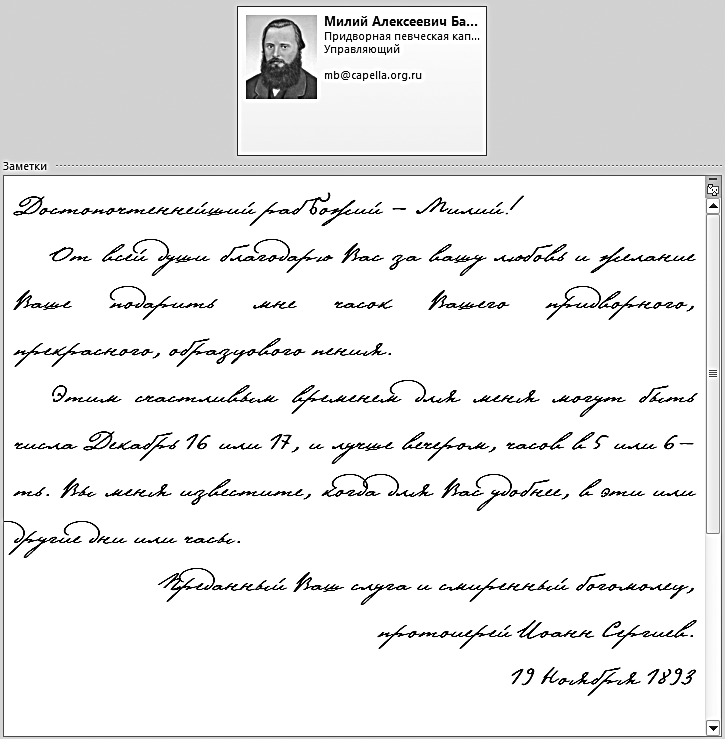 Милий Алексеевич Ба...
Придворная певческая кап...
Управляющий
mb@capella.org.ru
Заметки
Достопочтеннейший раб Божий – Милий!
От всей души благодарю Вас за вашу любовь и желание
Ваше подарить мне часок Вашего придворного,
прекрасного, образцового пения.
Этим счастливым временем для меня могут быть
числа Декабрь 16 или 17, и лучше вечером, часов в 5 или 6–
ть. Вы меня известите, когда для Вас удобнее, в эти или
другие дни или часы.
Преданный Ваш слуга и смиренный богомолец,
протоиерей Иоанн Сергиев.
19 Ноября 1893